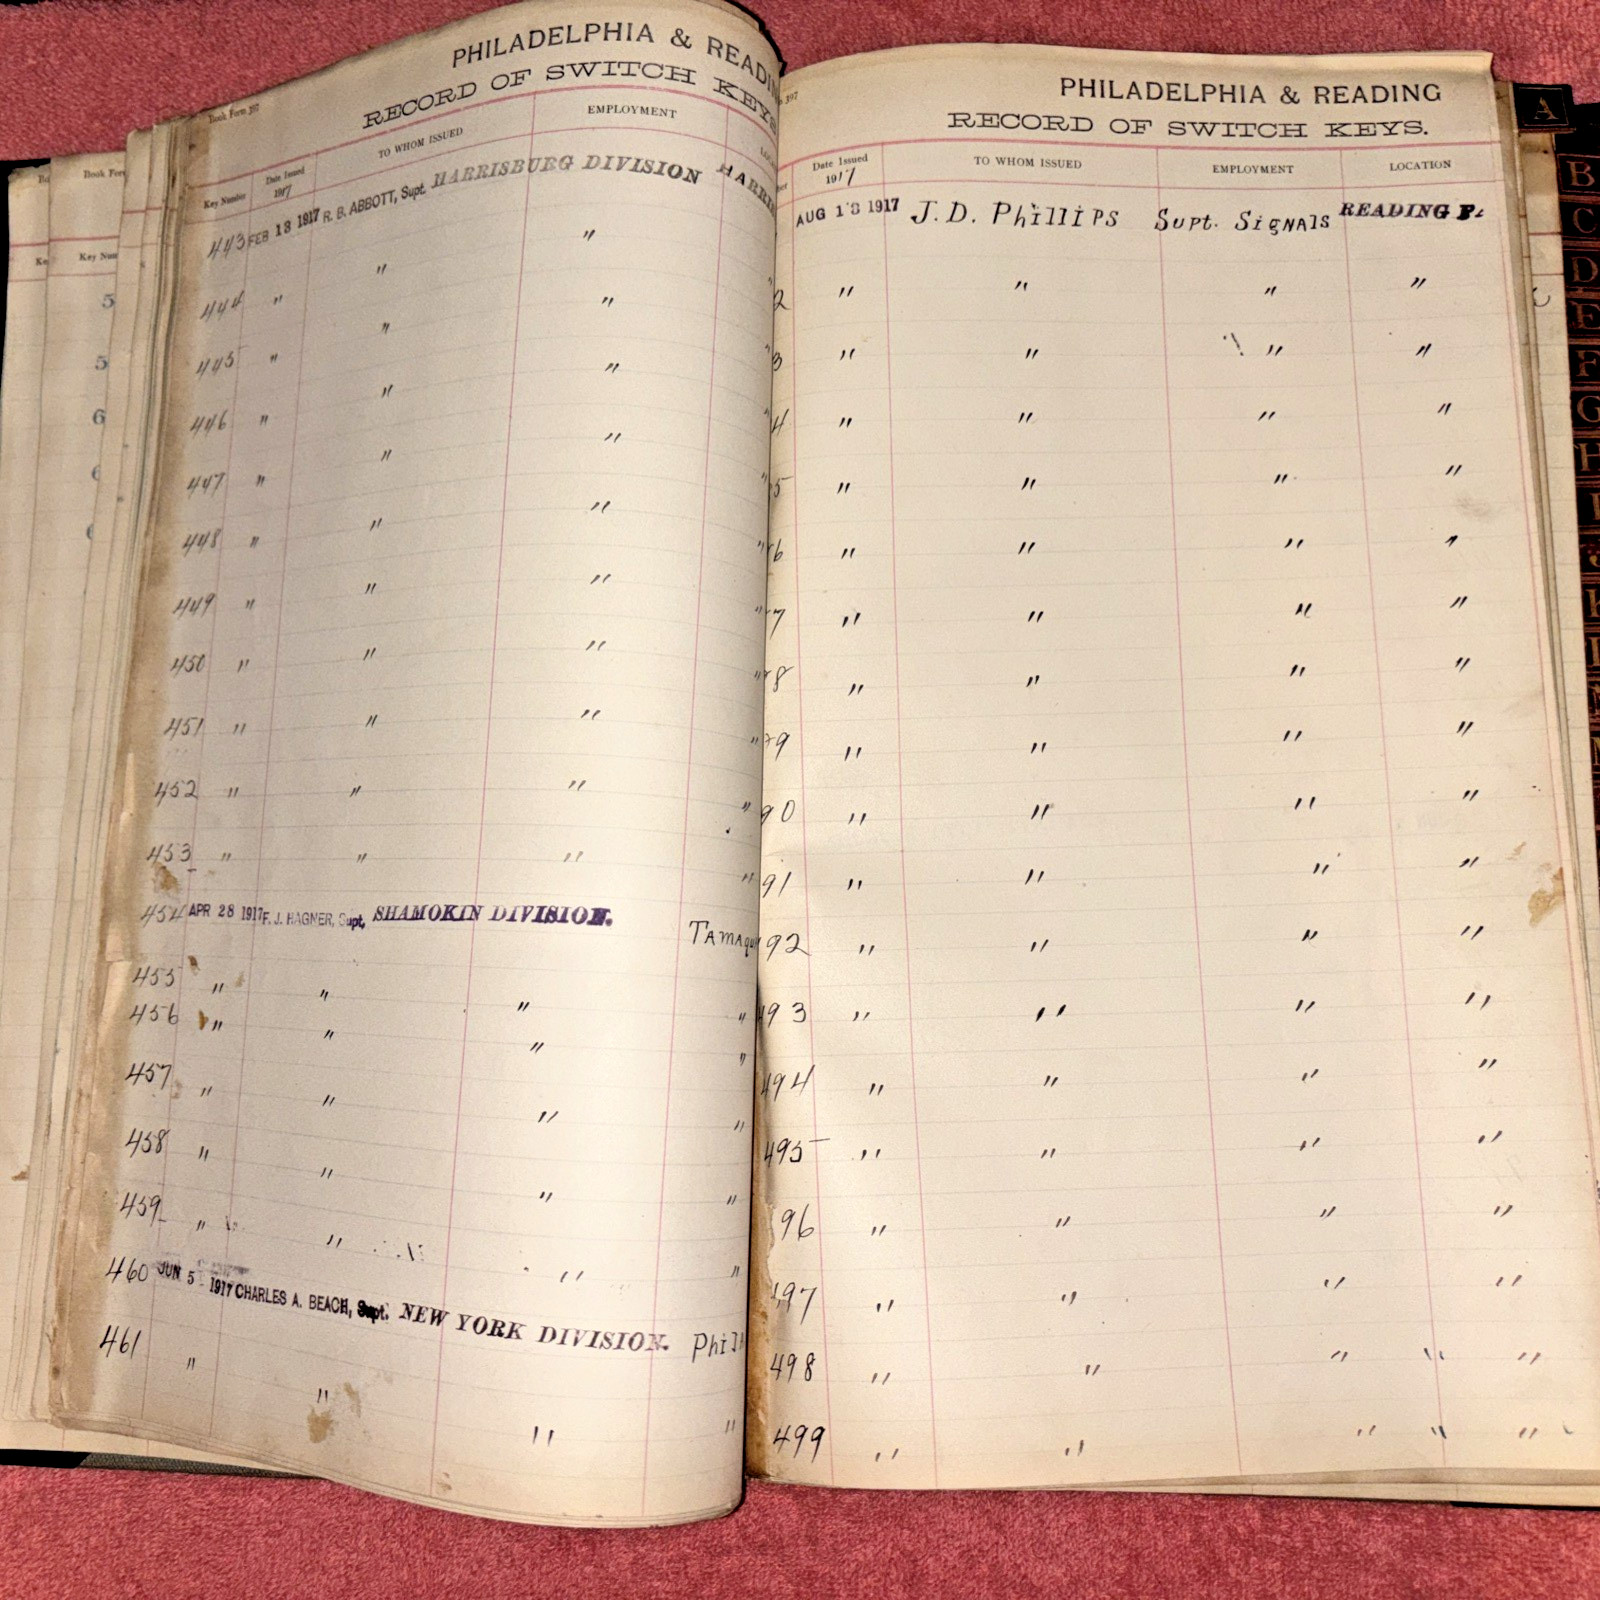 Book Form 397
PHILADELPHIA & READING
RECORD OF SWITCH KEYS
Key Number Date Issued 1917 TO WHOM ISSUED EMPLOYMENT
443 FEB 13 1917 R. B. ABBOTT, Supt. HARRISBURG DIVISION HARRIS
444 " " "
445 " " "
446 " " "
447 " " "
448 " " "
449 " " "
450 " " "
451 " " "
452 " " " "
453 " " " "
454 APR 28 1917 F. J. HAGNER, Supt. SHAMOKIN DIVISION. Tamaqu
455 " " " "
456 " " " "
457 " " " "
458 " " " "
459 " " " "
460 JUN 5 1917 CHARLES A. BEACH, Supt. NEW YORK DIVISION. Phil
461 " " " "
397
PHILADELPHIA & READING
RECORD OF SWITCH KEYS.
Date Issued 1917 TO WHOM ISSUED EMPLOYMENT LOCATION
AUG 13 1917 J. D. Phillips Supt. Signals READING P.
2 " " " "
3 " " " "
4 " " " "
5 " " " "
6 " " " "
7 " " " "
8 " " " "
9 " " " "
90 " " " "
91 " " " "
92 " " " "
493 " " " "
494 " " " "
495 " " " "
96 " " " "
497 " " " "
498 " " " " "
499 " " " " "
Book Form
Key Num
5
5
6
6
6
A
B
C
D
E
F
G
H
I
J
K
L
M
N